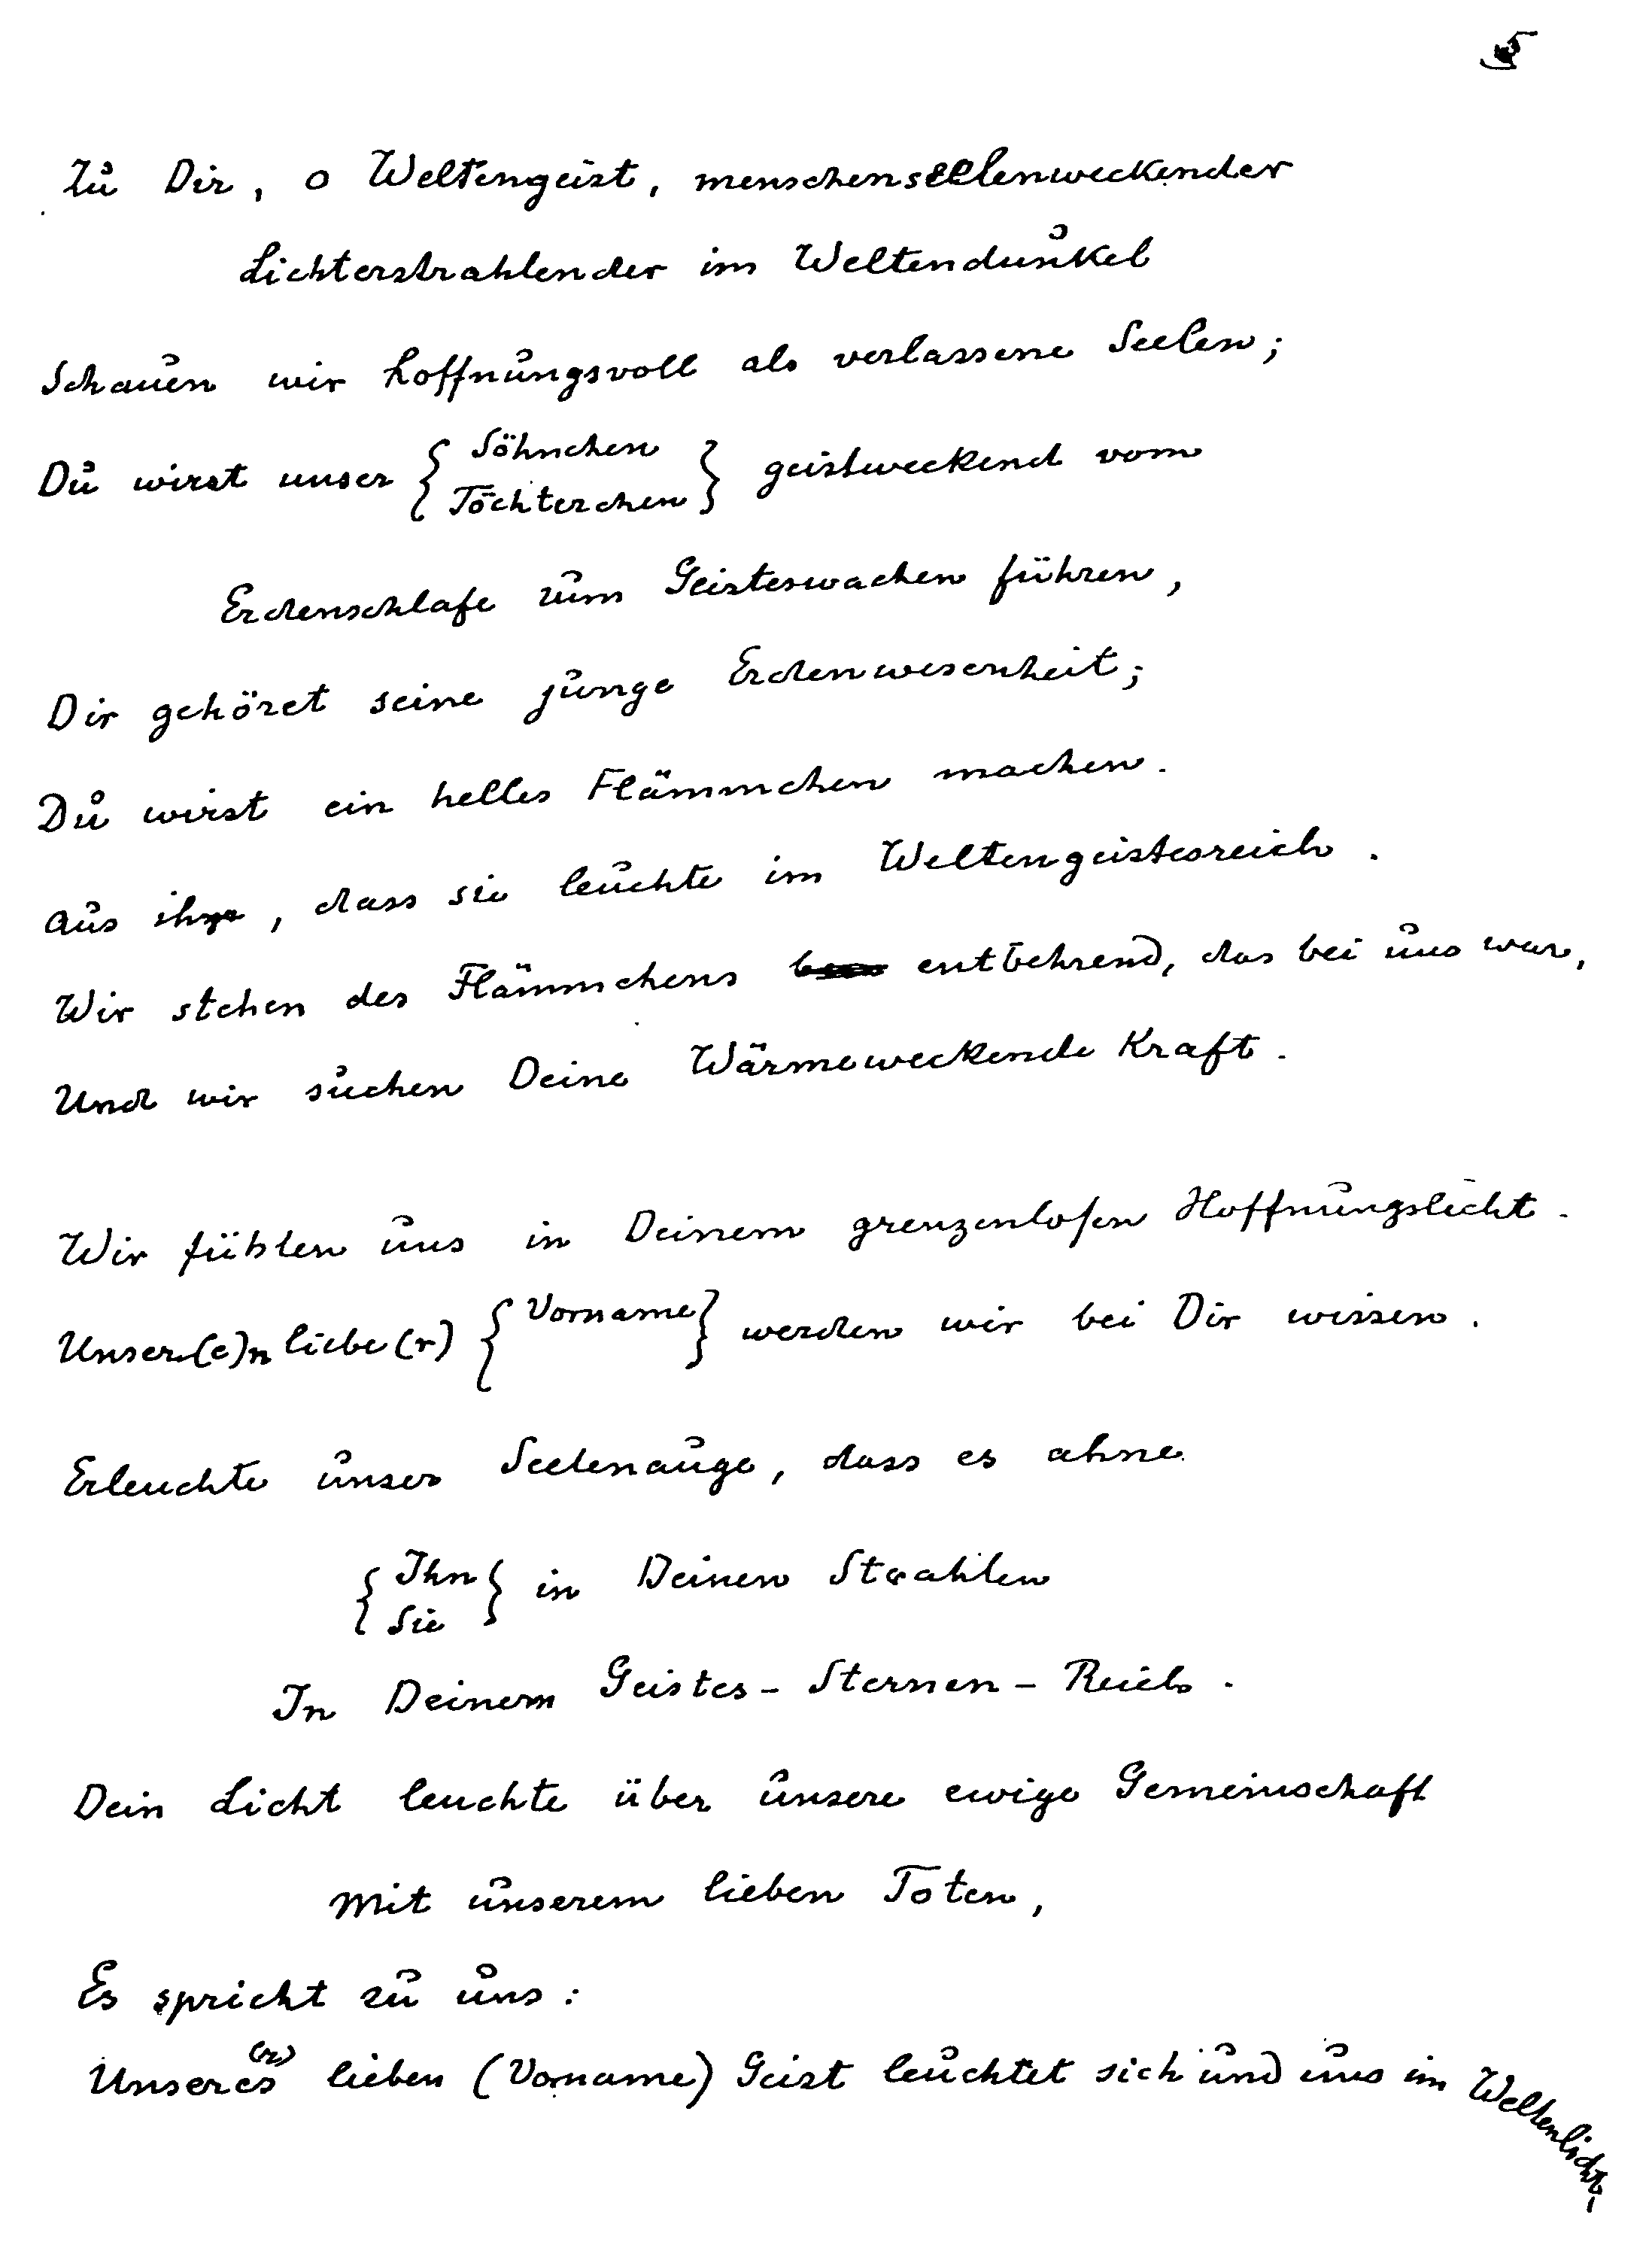 5
Zu Dir, o Weltengeist, menschenseelenweckender
Lichterstrahlender im Weltendunkel
Schauen wir hoffnungsvoll als verlassene Seelen;
Du wirst unser { Söhnchen
Töchterchen } geistweckend vom
Erdenschlafe zum Geisteswachen führen,
Dir gehöret seine junge Erdenwesenheit;
Du wirst ein helles Flämmchen machen.
aus ihr, dass sie leuchte im Weltengeistesreich.
Wir stehen des Flämmchens entbehrend, das bei uns war,
Und wir suchen Deine Wärmeweckende Kraft.
Wir fühlen uns in Deinem grenzenlosen Hoffnungslicht.
Unser(e)n liebe(r) { Vorname } werden wir bei Dir wissen.
Erleuchte unser Seelenauge, dass es ahne
{ Ihn
Sie } in Deinen Strahlen
In Deinem Geistes-Sternen-Reich.
Dein Licht leuchte über unsere ewige Gemeinschaft
mit unserem lieben Toten,
Es spricht zu uns:
Unseres (r) lieben (Vorname) Geist leuchtet sich und uns im Weltenlicht.